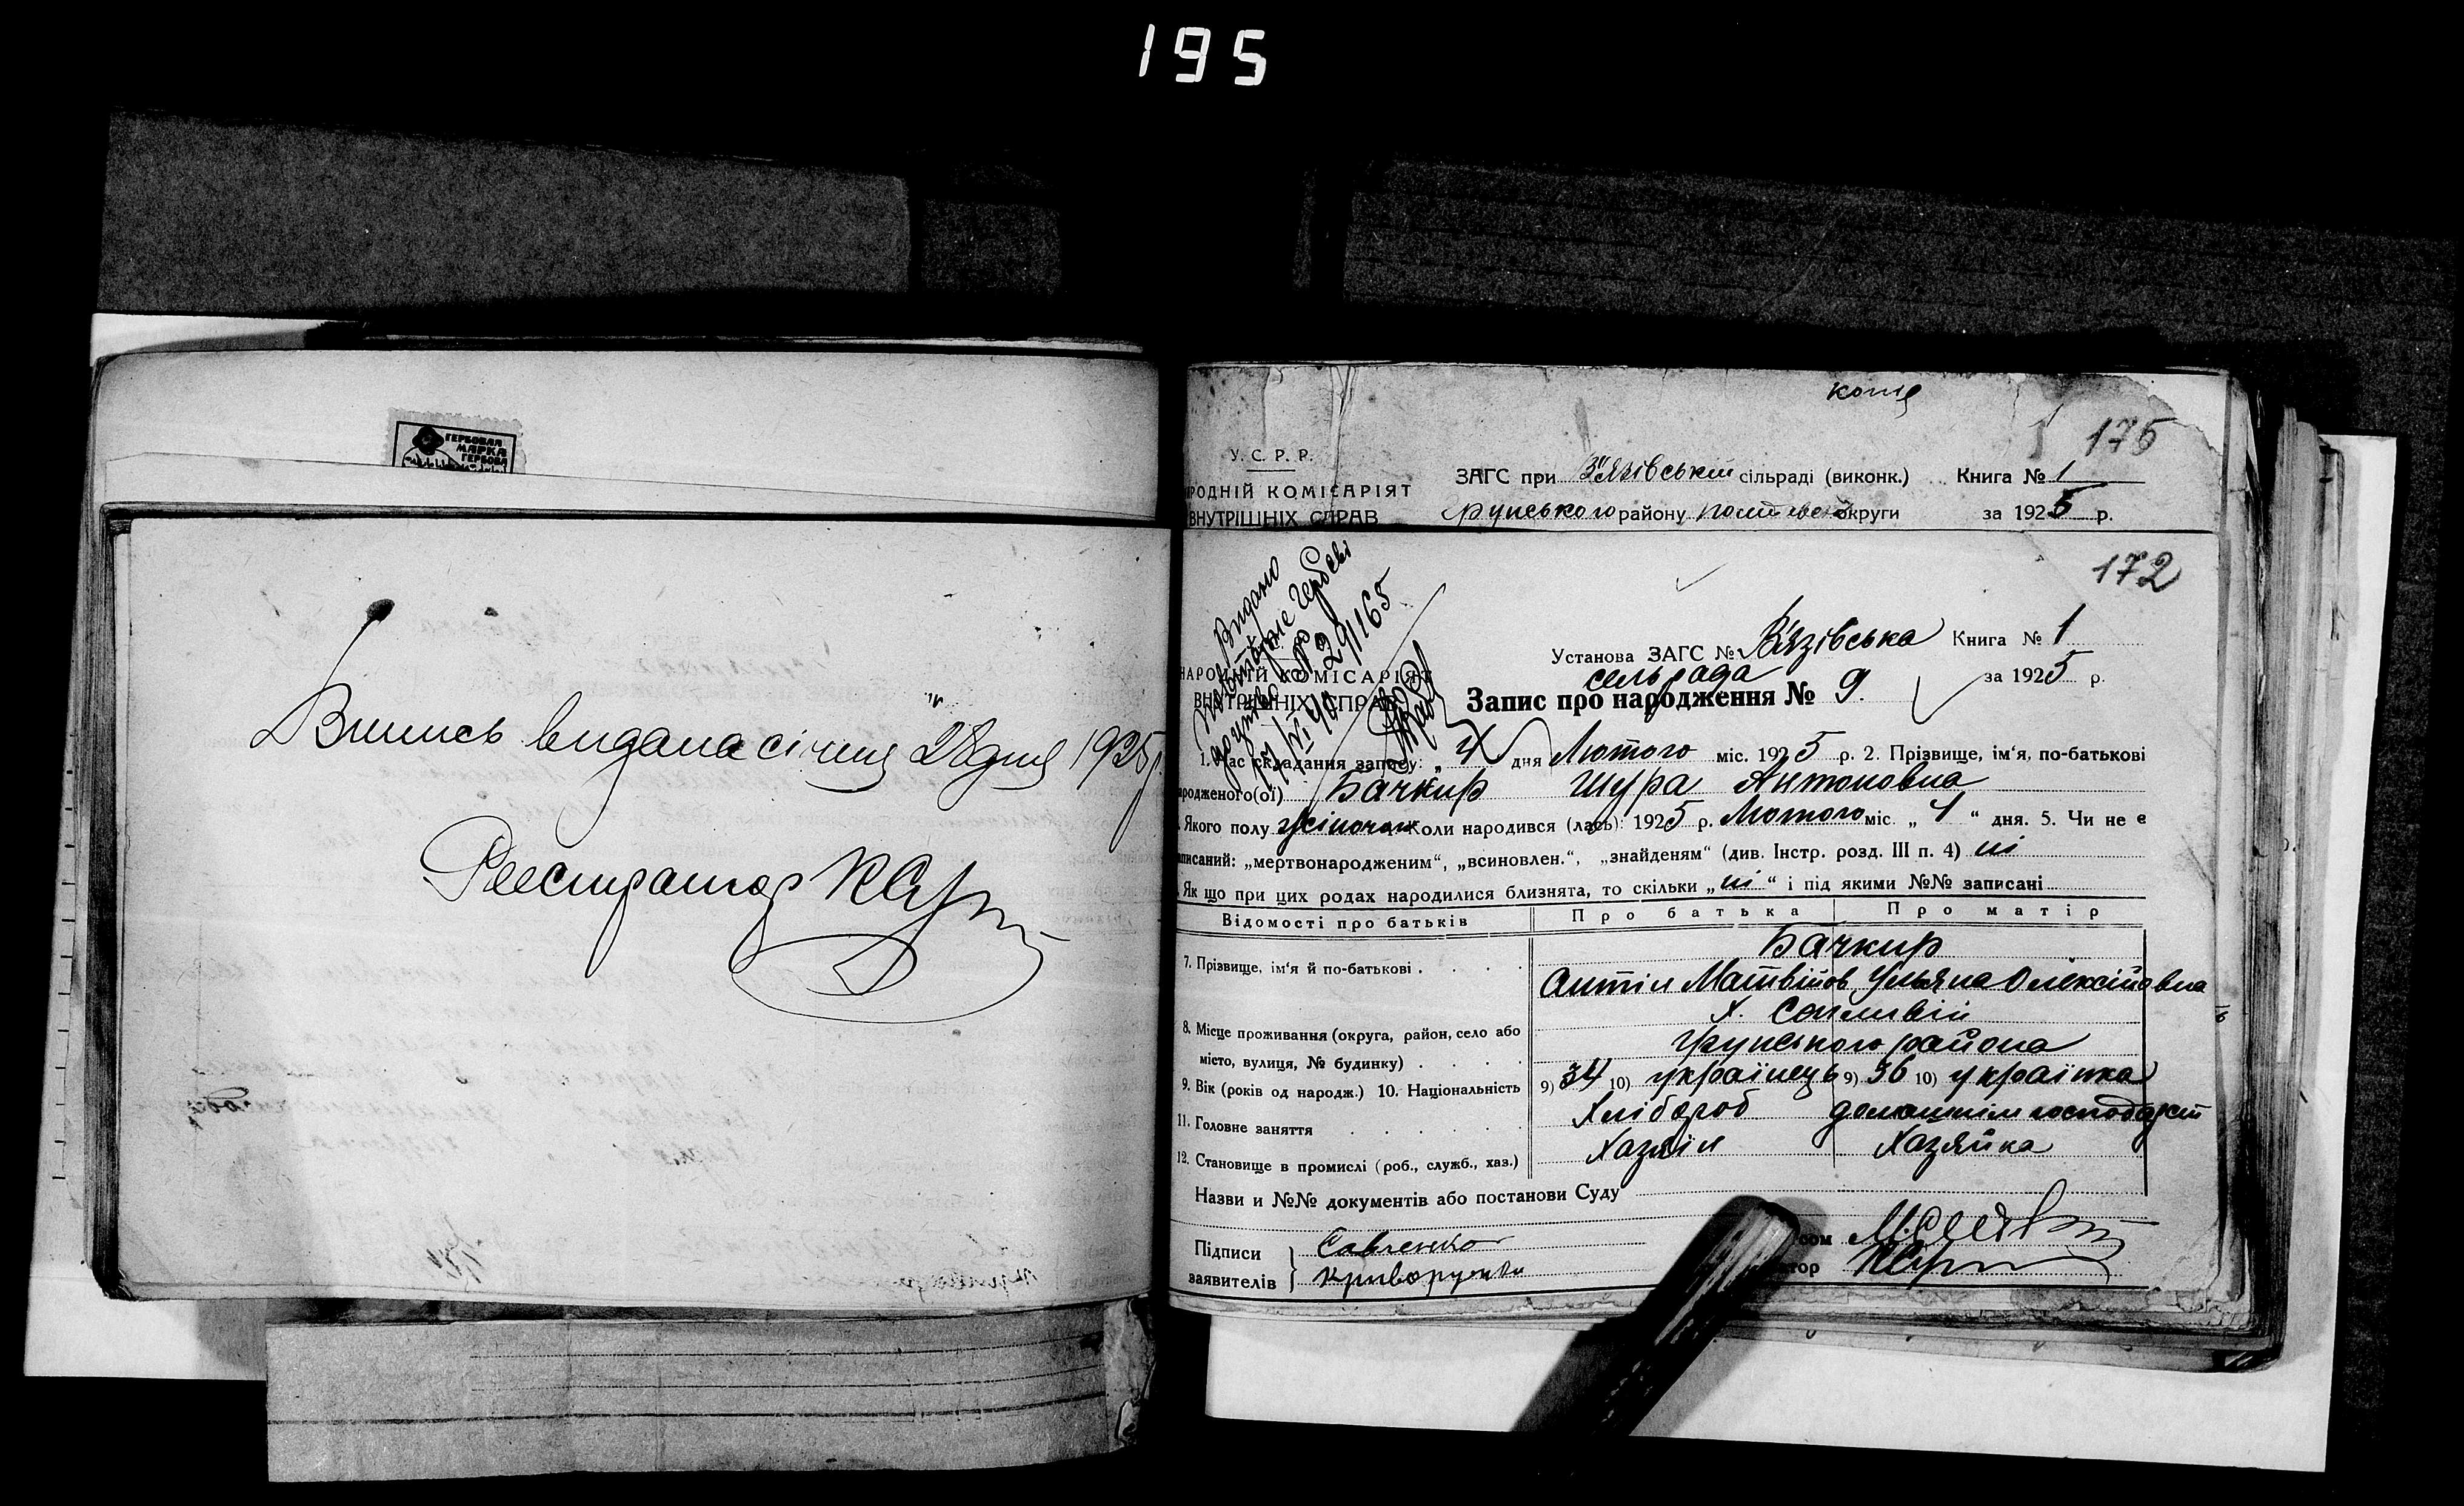 195
ГЕРБОВАЯ
МАРКА
ГЕРБОВА
Випись видана січня 28 дня 1925 р.
Реестратор
копія
175
У. С. Р. Р.
РОДНІЙ КОМІСАРІЯТ
ВНУТРІШНІХ СПРАВ
ЗАГС при В'язівській сільраді (виконк.) Книга № 1
Грунського району округи за 1925 р.
172
Видано
повторне
№ 291165
НАРОДНІЙ КОМІСАРІЯТ
ВНУТРІШНІХ СПРАВ
Установа ЗАГС № В'язівська Книга № 1
сельрада за 1925 р.
Запис про народження № 9.
1. Час складання запису: „ 4 дня Лютого міс. 1925 р. 2. Прізвище, ім'я, по-батькові
родженого(ої) Бачкир Шура Антоновна
Якого полу жіночого Коли народився (лась): 1925 р. Лютого міс. „ 4 “ дня. 5. Чи не є
записаний: „мертвонародженим“, „всиновлен.“, „знайденям“ (див. Інстр. розд. III п. 4) ні
Як що при цих родах народилися близнята, то скільки „ ні “ і під якими №№ записані
Відомості про батьків Про батька Про матір
7. Прізвище, ім'я й по-батькові . . . . Бачкир
Антін Матвійов Ульяна Олексійовна
8. Місце проживання (округа, район, село або
місто, вулиця, № будинку) . . . . Грунського района
9. Вік (років од народж.) 10. Національність 9) 34 10) українець 9) 36 10) українка
11. Головне заняття . . . . . Хлібороб домашнім господарст
12. Становище в промислі (роб., служб., хаз.) Хазяїн Хазяйка
Назви и №№ документів або постанови Суду
Підписи Савченко
заявителів Криворучко